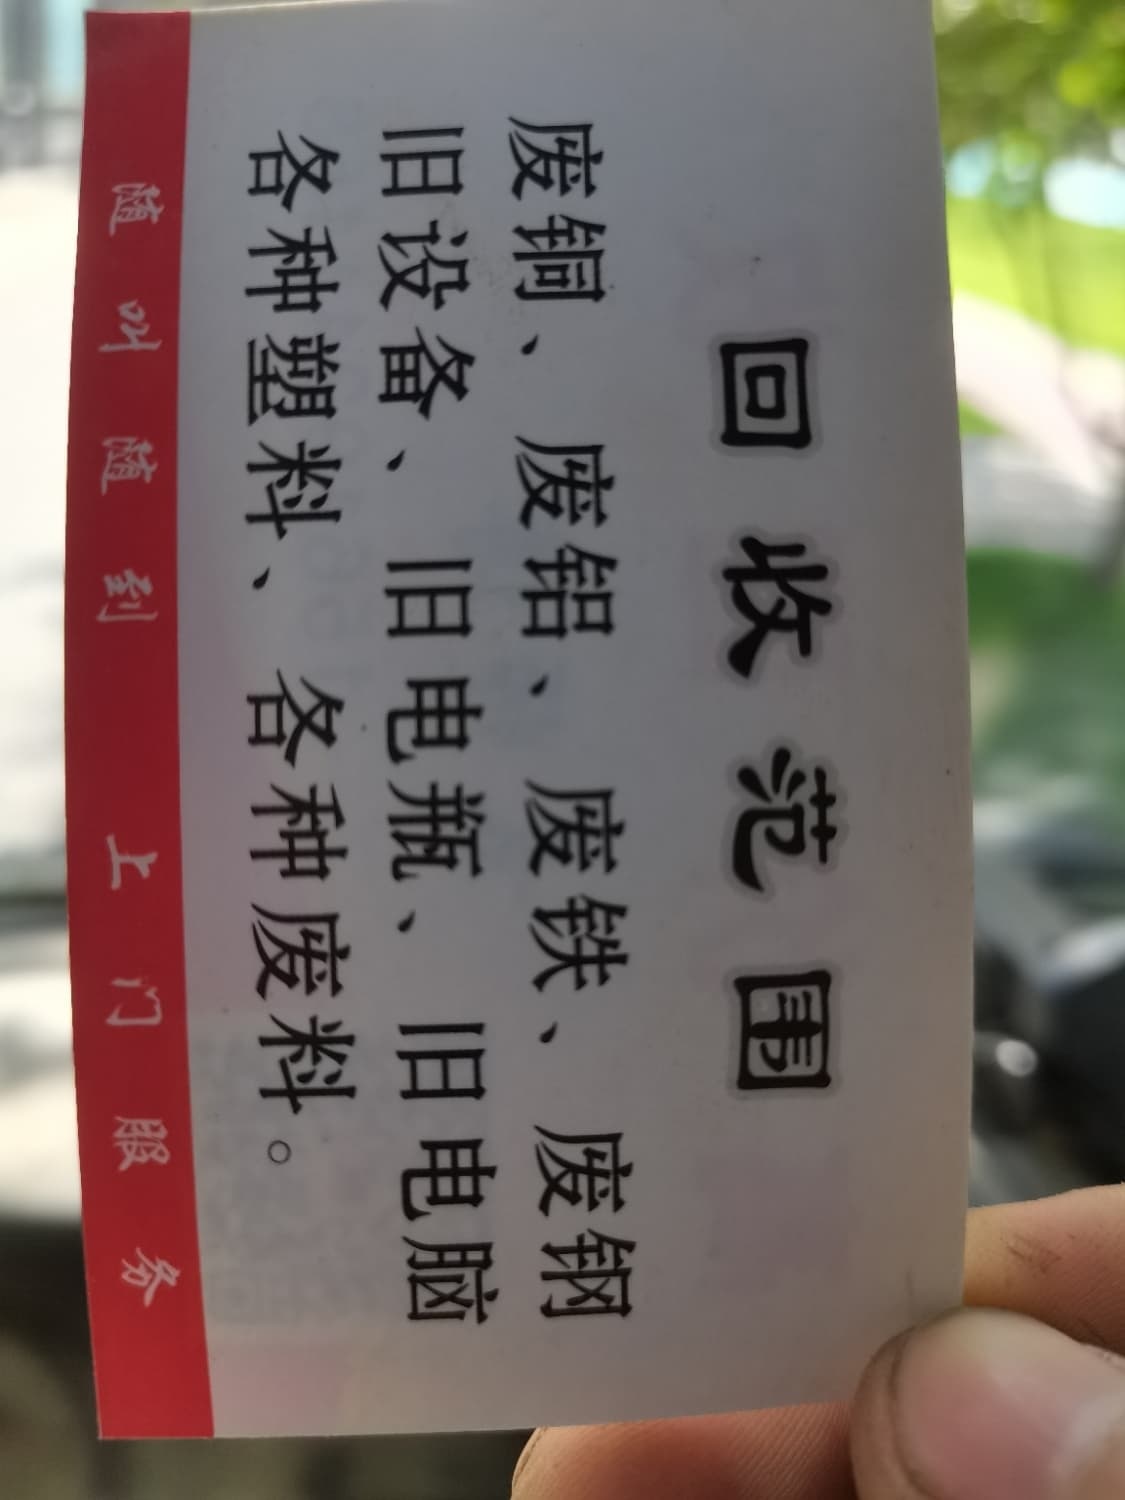 回收范围
废铜、废铝、废铁、废钢
旧设备、旧电瓶、旧电脑
各种塑料、各种废料。
随叫随到 上门服务